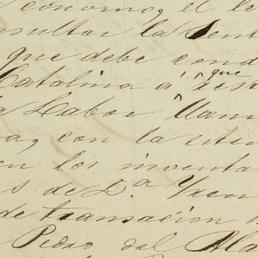 conomo, el le
sultar la Sent
que debe cond
Catalina á que
Labor llam
a, con la esten
en los inventa
s de D.a Yren
de transacion
Pedro del Ala